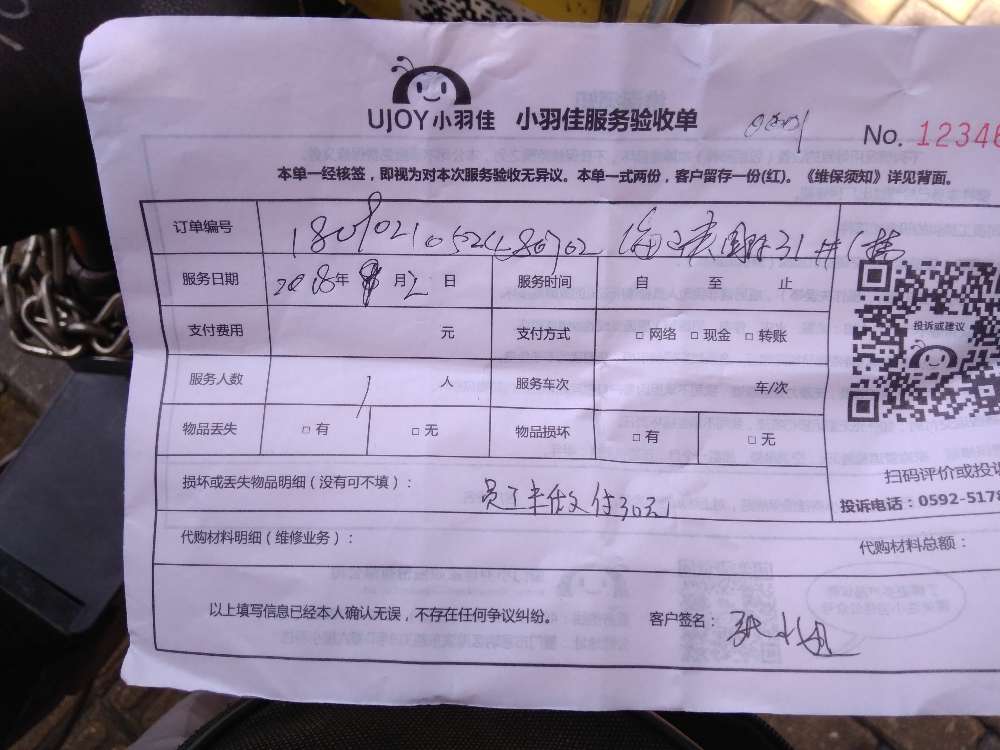 UJOY小羽佳 小羽佳服务验收单
No. 12346
本单一经核签，即视为对本次服务验收无异议。本单一式两份，客户留存一份(红)。《维保须知》详见背面。
订单编号
服务日期 2018年 月2日 服务时间 自 至 止
支付费用 元 支付方式 □ 网络 □ 现金 □ 转账
投诉或建议
服务人数 1 人 服务车次 车/次
物品丢失 □ 有 □ 无 物品损坏 □ 有 □ 无
扫码评价或投诉
损坏或丢失物品明细（没有可不填）： 员工 付30元
投诉电话：0592-5178
代购材料明细（维修业务）： 代购材料总额：
以上填写信息已经本人确认无误，不存在任何争议纠纷。 客户签名：